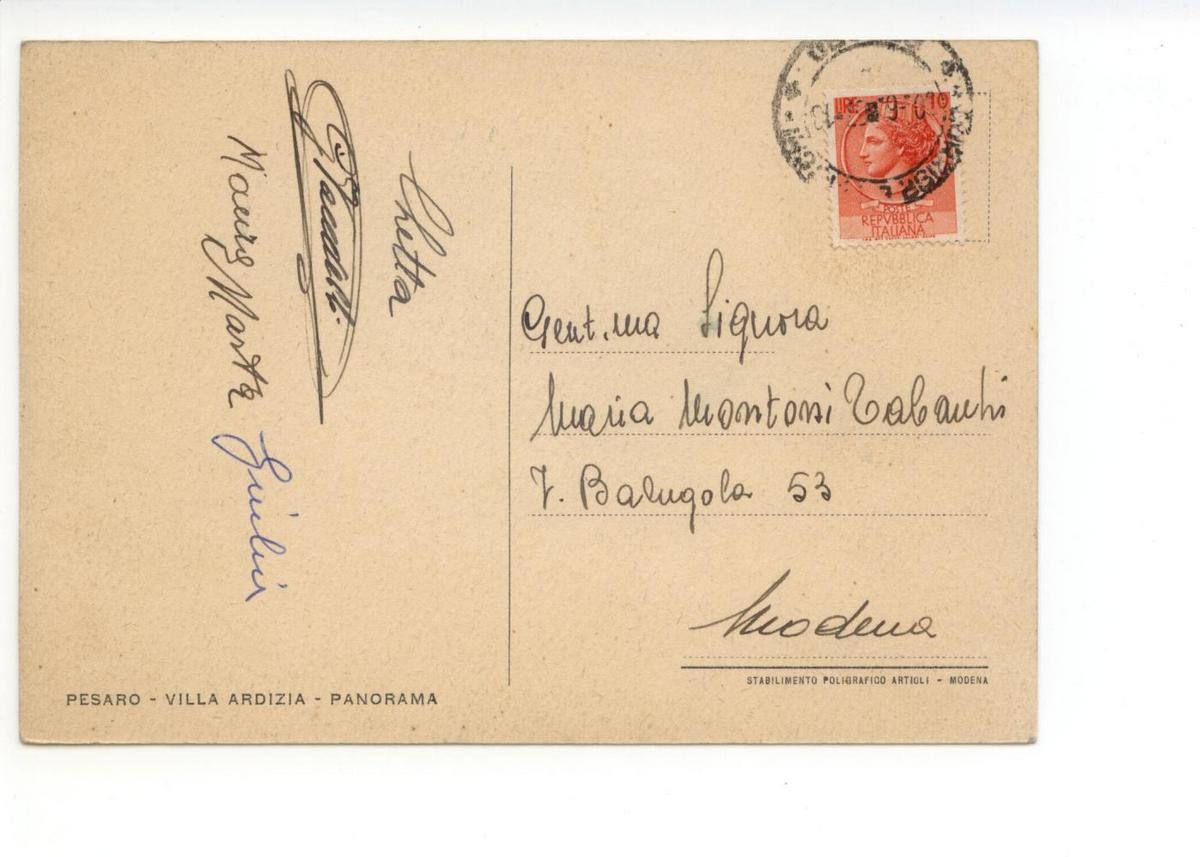 Chetta
Maurizio Marta
Giulia
Gent.ma Signora
Maria Montorsi Tabanhi
V. Balugola 53
Modena
LIRE 10
POSTE
REPVBBLICA
ITALIANA
PESARO - VILLA ARDIZIA - PANORAMA
STABILIMENTO POLIGRAFICO ARTIOLI - MODENA